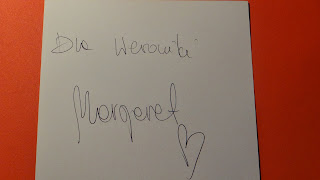 Dla Weroniki
Margaret